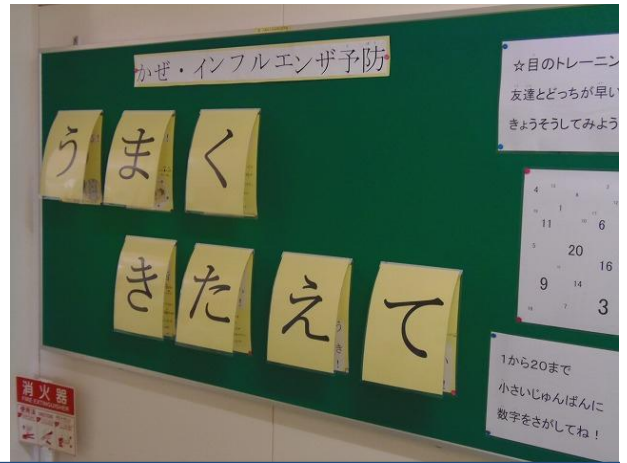 かぜ・インフルエンザ予防
うまく
きたえて
☆目のトレーニン
友達とどっちが早い
きょうそうしてみよう
4
1
11
6
5
20
16
9
14
7
3
1から20まで
小さいじゅんばんに
数字をさがしてね！
消火器
FIRE EXTINGUISHER